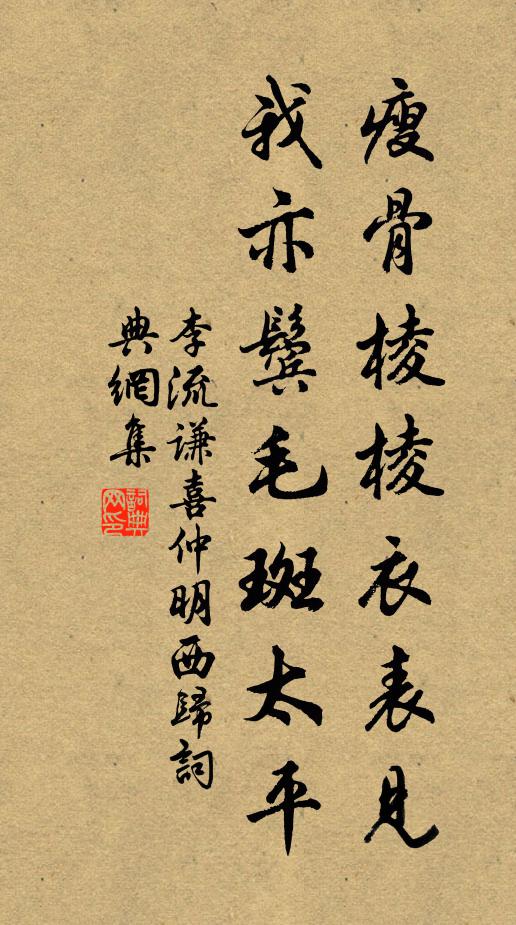 瘦骨棱棱衣表見
我亦鬓毛斑太平
李流谦喜仲明西歸詞
典網集
詞典网印